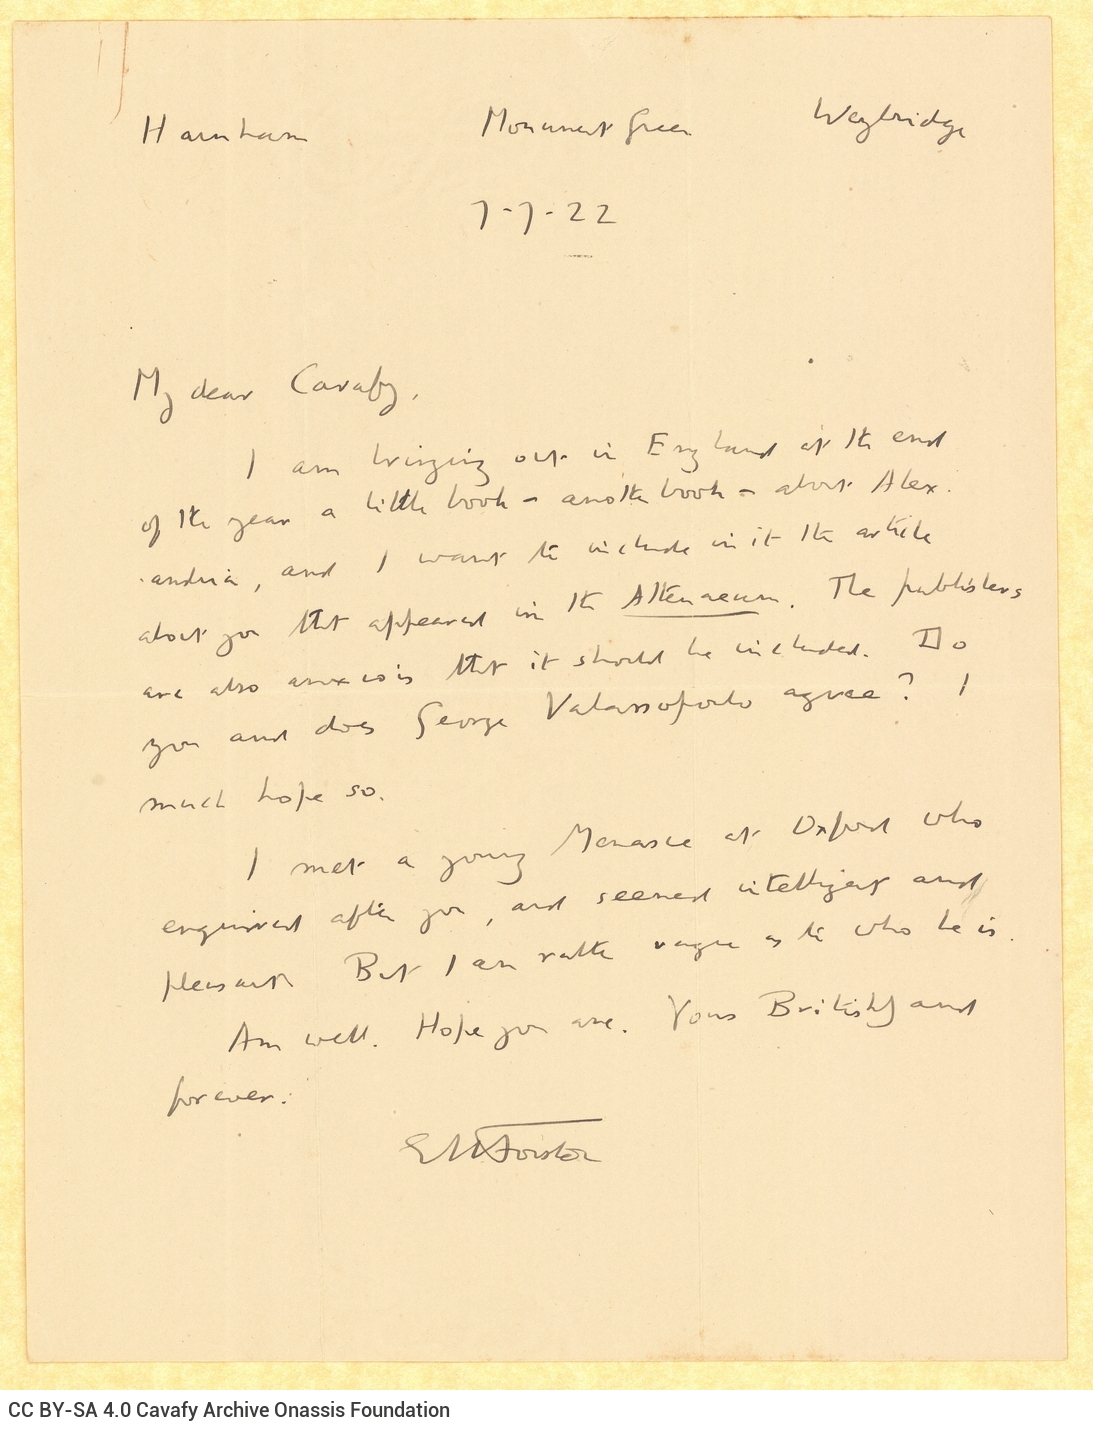 Harnham Monument Green Weybridge
7-7-22
My dear Cavafy,
I am bringing out in England at the end
of the year a little book - another book - about Alex-
andria, and I want to include in it the article
about you that appeared in the Athenaeum. The publishers
are also anxious that it should be included. Do
you and does George Valassopoulo agree? I
much hope so.
I met a young Menasce at Oxford who
enquired after you, and seemed intelligent and
pleasant. But I am rather vague as to who he is.
Am well. Hope you are. Yours Britishly and
forever:
EMForster
CC BY-SA 4.0 Cavafy Archive Onassis Foundation